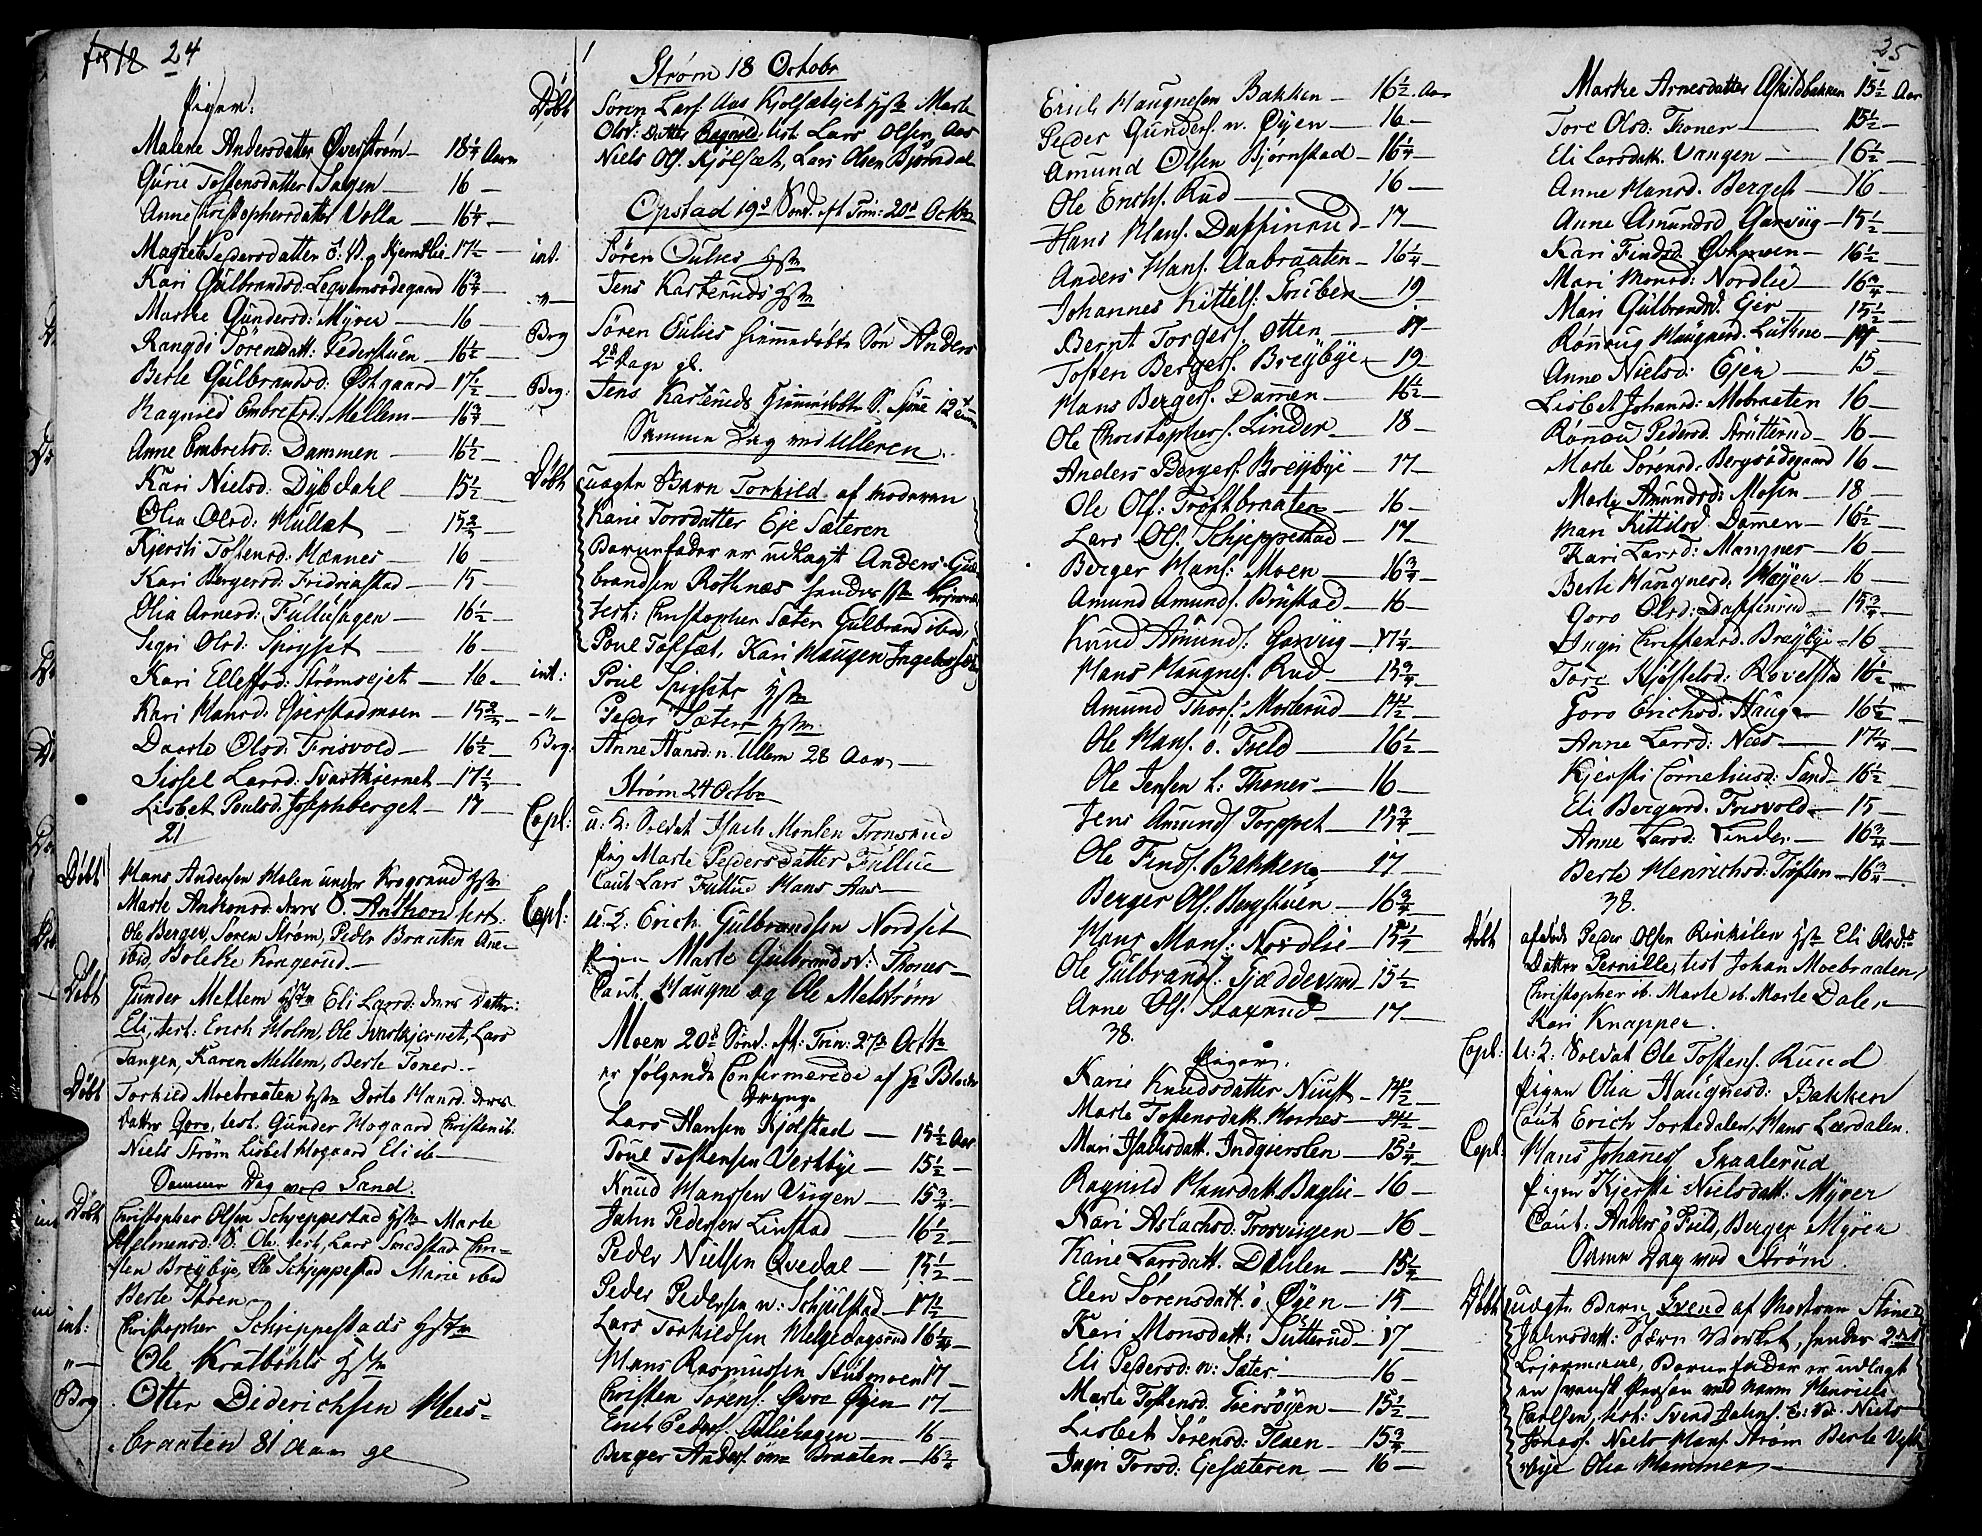 24
Piger.
Malene Andersdatter Øverstrøm — 18¼ Aar
Gurie Tostensdatter Sagen — 16 —
Anne Christophersdatter Volla — 16¼ —
Magrete Pedersdatter — 17½ —
Kari Gulbrandsd: Legvemsødegaard 16¾ —
Marthe Gundersd: Myrer — 16 —
Rangdi Sørensdatt: Federkuen — 16½ —
Berte Gulbrandsd: Østgaard — 17½ —
Ragnild Embretsd: Mellem — 16¾ —
Anne Embretsd: Dammen — 16½ —
Kari Nielsd: Dybdahl — 15½ —
Olia Olsd: Hullet — 15¾ —
Kjersti Tostensd: Mænnes — 16 —
Kari Bergersd: Fridrichstad — 15 —
Olia Arnesd: Fulluhagen — 16½ —
Sigri Olsd: Spigset — 16 —
Kari Ellefsd: Strømsejet — 16 —
Kari Hansd: Overstadmoen — 15¾ —
Dorte Olsd: Frisvold — 16½ —
Sissel Larsd: Svartkiernet — 17½ —
Lisbet Poulsd: Josephberget — 17 —
21
Døbt Hans Andersen Molen under Krogsrud Hstr
Marte Anthonsd: deres S. Anthon test:
Ole Berger, Søren Strøm, Peder Braaten Anne
ibid, Boletke Kongerud —
Døbt Gunder Mellem Hstr Eli Larsd: deres Datter:
Eli, test: Erich Holm, Ole Svartkjernet, Lars
Tangen, Karen Mellem, Berte Toner —
Døbt Torkild Moebraaten Hstr Dorte Hansd: deres
Datter Goro, test: Gunder Hogaard Christen ib:
Niels Strøm Lisbet Hogaard Eli ib —
Samme Dag ved Sand.
Døbt Christopher Olsen Schjeppestad Hstr Marte
S. Ole. test, Lars Smedstad Chri-
sten Breybye, Ole Schjeppestad Marie ibid
Berte Moen —
int: Christopher Schjeppestads Hstr
" — Ole Kratbøhls Hstr
Beg Otter Diderichsen Mees-
braaten 81 Aar gl
Strøm 18 Octobr
Døbt Søren Lars: Aas Kjølsætejet Hstr Marte
Olsd: Datter Ragnild: test Lars Olsen Aas
Niels Ols: Kjølsæt, Lars Olsen Bjørndal
Opstad 19d Sønd. eft Trin: 20d Octbr
int. Søren Oulies Hstr
" — Jens Kasteruds Hstr
Beg Søren Oulies hiemmedøbte Søn Anders
2 Dage gl.
Beg: Jens Kasteruds hiemmedøbte S. 12
Samme Dag ved Ulleren
Døbt uægte Barn Torkild af moderen
Karie Torsdatter Eje Sæteren
Barnefader er udlagt Anders Gul-
brandsen Rothnes hendes
test: Christopher Sæter Gulbrand ibid
Poul Tofsæt, Kari Haugen Ingeborg
int: Poul Spigsets Hstr
" — Peder Sæters Hstr
Beg: Anne Hansd: n. Ullern 28 Aar —
Strøm 24 Octbr
Copl: u: S: Soldat Isach Monsen Tronsrud
Pig Marte Pedersdatter Fullue
Caut Lars Fullue Hans Aas —
Copl: u: S: Erich Gulbrandsen Nordset
Pigen Marte Gulbrandsd: Thoner —
Caut: Haugne og Ole Melstrøm
Moen 20d Sønd. eft: Trin: 27d Octbr
er følgende Confirmerede af Hr
Drenge
Lars Hansen Kjølstad — 15½ Aar
Poul Tostensen Verkbye — 15½ —
Knud Hanssen Viigen — 15¾ —
John Pedersen Linstad — 16½ —
Peder Nielsen Qvedal — 15½ —
Peder Pedersen n: Schjulstad — 17½ —
Lars Torkildsen Helgedagsrud 16¼ —
Hans Rasmussen Stubmoen 17 —
Christen Sørens: Øvre Øyen — 17 —
Erich Peders: Ouliehagen — 16 —
Berger Anders: Braaten — 16¾
25
Erich Haugnesen Bakken — 16½ Aar
Peder Gunders. n. Øyen — 16 —
Amund Olsen Bjørnstad — 16¼ —
Ole Erichs. Rud — 16 —
Hans Hans. Daffinrud — 17 —
Anders Hans. Aabraaten — 16¼ —
Johannes Kittels: Gruben — 19 —
Bernt Torgers. Otten — 17 —
Tosten Bergers. Breybye — 19 —
Hans Bergers. Damen — 16½ —
Ole Christophers. Linder — 18 —
Anders Bergers. Breybye — 17 —
Ole Ols: Trøftbraaten — 16 —
Lars Ols. Schjeppestad — 17 —
Berger Hans: Moen — 16¾ —
Amund Amunds. Brustad — 16 —
Knud Amunds: Garviig — 17¼ —
Hans Haugnes. Rud — 15¾ —
Amund Thors: Mosterud — 14½ —
Ole Hans. ö. Fjeld — 16½ —
Ole Jensen L: Thoner — 16 —
Jens Amunds Torppet — 15¾ —
Ole Finds. Bakken — 17 —
Berger Ols. Bergstuen — 16¾ —
Hans Hans: Nordlie — 15¼ —
Ole Gulbrands. Gjæddevand — 15½ —
Arne Ols. Slaxrud — 17 —
38.
Piger.
Karie Knudsdatter Niust — 14½ —
Marte Tostensdatt. Hornes — 14½ —
Mari Isaksdatt. Indgierslen — 15¼ —
Ragnild Hansdatt. Baglie — 16 —
Kari Aslachsd: Trosviigen — 16 —
Karie Larsdatt. Dahlen — 15¼ —
Elen Sørensdatt. ö Øyen — 15 —
Kari Monsdatt: Sutterud — 17 —
Eli Pedersd: n: Sæter — 16 —
Marte Tostensd. Tiersøyen — 15½ —
Lisbet Sørensd: Floen — 15¾ —
Ingri Torsd: Ejesæteren — 16 —
Marthe Arnesdatter Askildbakken 15½ Aar
Tore Olsd: Thoner — 15½ —
Eli Larsdatt. Vangen — 16½ —
Anne Hansd. Berget — 16 —
Anne Amundsd Garviig — 15½ —
Kari Findsd Østmoen — 16½ —
Mari Monsd: Nordlie — 16¾ —
Mari Gulbrandsd. Ejer — 15½ —
Rønnoug Haugnesd. Lutkne — 17 —
Anne Nielsd: Ejer — 15 —
Lisbet Johansd: Mobraaten 16 —
Rønnou Pedersd. Strutterud — 16 —
Marte Sørensd. Bergsødegaard 16 —
Marte Amundsd: Mosen — 18 —
Mari Kittilsd Damen — 16½ —
Kari Larsd: Mangner — 16 —
Berte Haugnesd: Høyen — 16 —
Goro Olsd: Daffinrud — 15¾ —
Ingri Christensd. Breybye — 16 —
Tore Kjøstelsd: Rovelstad 16½ —
Goro Erichsd: Hauge — 16½ —
Anne Larsd: Nees — 17¼ —
Kjersti Corneliusd: Sand — 16½ —
Eli Bergersd. Frisvold — 15 —
Anne Larsd: Linder — 16¾ —
Berte Henrichsd: Tøften — 16¾ —
38.
Døbt afdøde Peder Olsen Rinkilen Hstr Eli Olsd:s
Datter Pernille, test Johan Moebraaten,
Christopher ib. Marte ib. Marte Dalen
Kari Knapper.
Copl: u: S. Soldat Ole Tostens. Ruud
Pigen Olia Haugnesd: Bakken
Caut Erich Sorkedalen, Hans Lærdalen.
Copl: Hans Johanes Skaalerud
Pigen Kjersti Nielsdatt: Myrer
Caut: Anders ö Fjeld, Berger Myrer
Samme Dag ved Strøm
Døbt uægte Barn Svend af Moderen Stine
Jahnsdatt: JernVærket, hendes 2det
Lejermaal, Barnefader er udlagt
en svensk Person ved navn Henrich
Carlsen, test: Svend Jahns. Niels
Jonas. Niels Hans. Strøm Berte Vest
bye Olia Hammer —